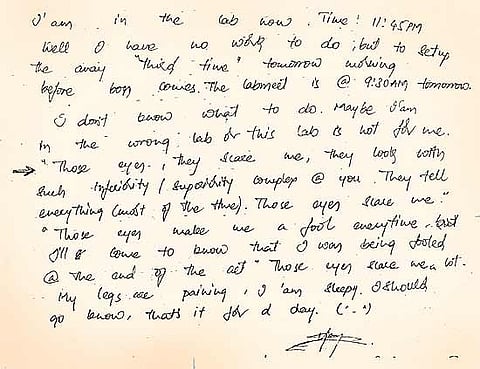 I'am in the lab now. Time! 11:45PM
Well I have no work to do, but to setup
the away "third time" tomorrow morning
before boss comes. The labmeet is @ 9:30AM tomorrow.
I don't know what to do. Maybe I'am
in the wrong lab or this lab is not for me.
"Those eyes, they scare me, they look with
such inferiority / superiority complex @ you. They tell
everything (most of the time). Those eyes scare me."
"Those eyes make me a fool everytime. but
I'll come to know that I was being fooled
@ the end of the act" Those eyes scare me a lot.
My legs are paining, I 'am sleepy. I should
go know, thats it for d day.